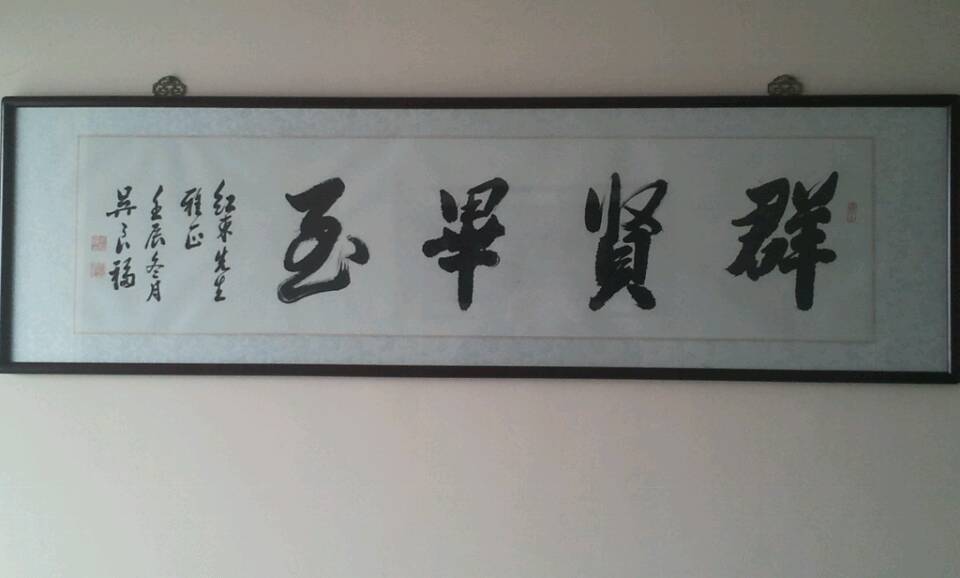 群賢畢至
紅東先生
雅正
壬辰冬月
吳良福